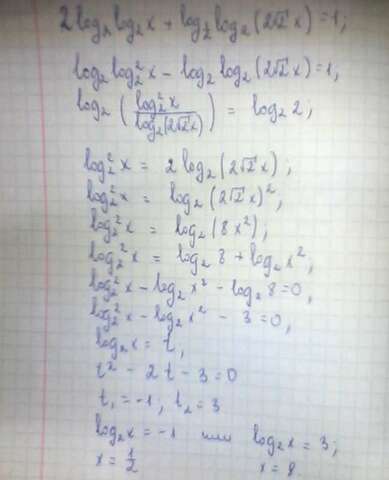 2 log₂ log₂ x + log_{1/2} log₂ (2√2 x) = 1;
log₂ log₂² x − log₂ log₂ (2√2 x) = 1;
log₂ ( log₂² x / log₂(2√2 x) ) = log₂ 2;
log₂² x = 2 log₂ (2√2 x);
log₂² x = log₂ (2√2 x)²,
log₂² x = log₂ (8 x²);
log₂² x = log₂ 8 + log₂ x²;
log₂² x − log₂ x² − log₂ 8 = 0,
log₂² x − log₂ x² − 3 = 0,
log₂ x = t,
t² − 2t − 3 = 0
t₁ = −1; t₂ = 3
log₂ x = −1 или log₂ x = 3;
x = 1/2 x = 8.